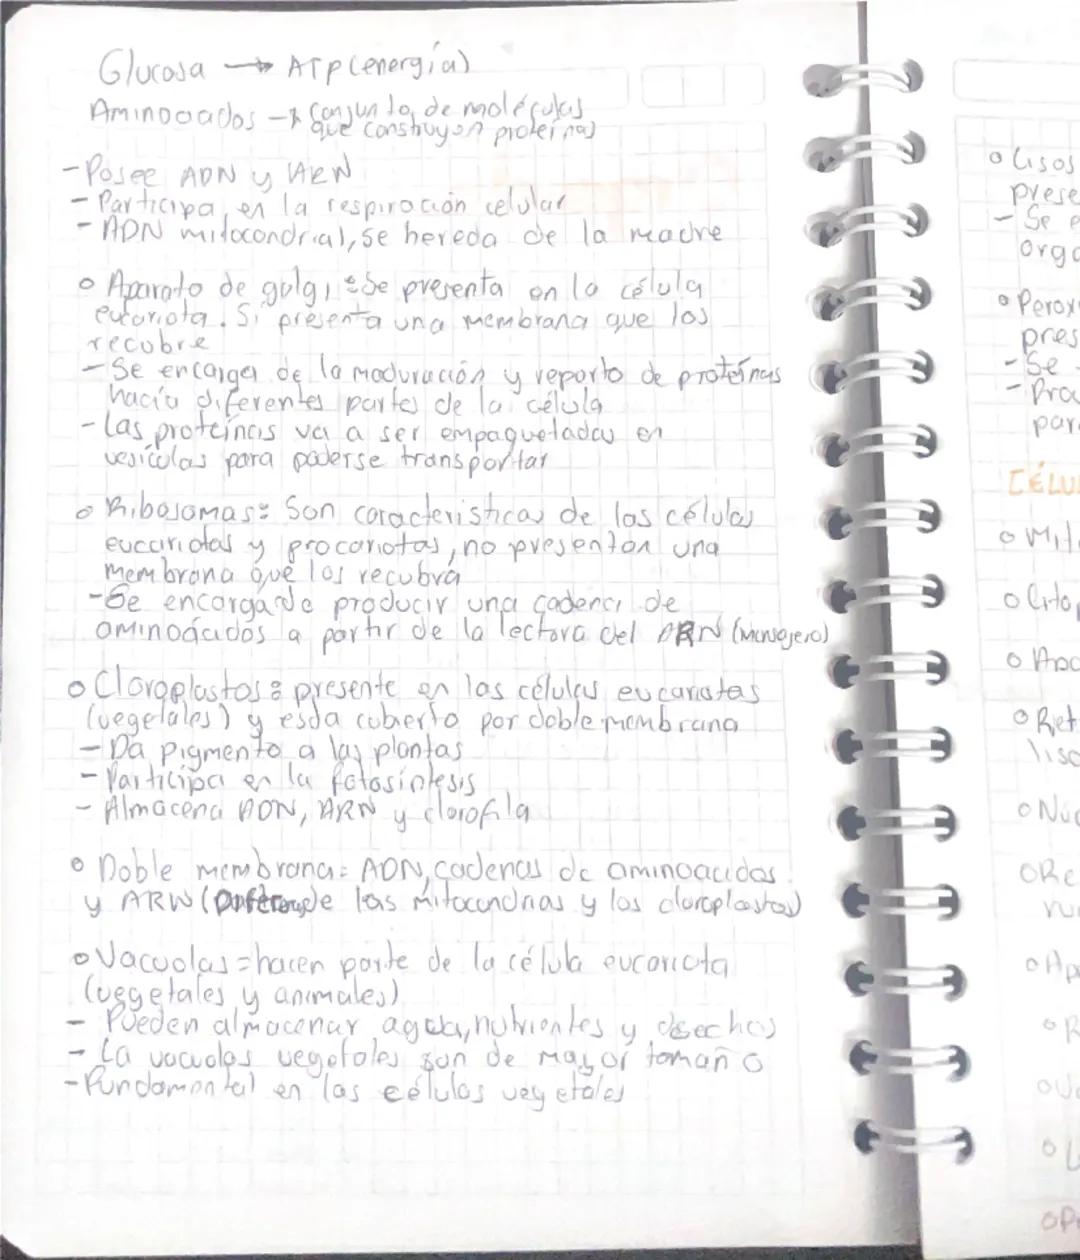 Glucosa → ATP (energía)
Aminoacidos → conjunto de moléculas
que construyen proteínas
- Posee ADN y ARN
- Participa en la respiración celular
- ADN mitocondrial, se hereda de la madre
o Aparato de golgi : Se presenta en la célula
eucariota. Si presenta una membrana que los
recubre
- Se encarga de la maduración y reparto de proteínas
hacia diferentes partes de la célula
- Las proteínas va a ser empaquetadas en
vesículas para poderse transportar
o Ribosomas: Son caracteristicas de las células
eucariotas y procariotas, no presentan una
membrana que los recubra
- Se encarga de producir una cadena de
aminoácidos a partir de la lectora del ARN (mensajero)
o Cloroplastos : presente en las células eucariotas
(vegetales) y esda cubierto por doble membrana
- Da pigmento a las plantas
- Participa en la fotosíntesis
- Almacena ADN, ARN y clorofila
o Doble membrana: ADN, cadenas de aminoacidos
y ARN ( de las mitocondrias y los cloroplastos)
o Vacuolas = hacen parte de la célula eucariota
(vegetales y animales)
- Pueden almacenar agua, nutrientes y desechos
- La vacuolas vegetales son de mayor tamaño
- Fundamental en las células vegetales
o Lisos
prese
- Se e
orga
o Perox
pres
- Se
- Pro
par
CÉLU
o Mit
o Cito
o Apa
o Ret
lisc
o Núc
o Re
ru
o Ap
o R
o Va
o L
o P